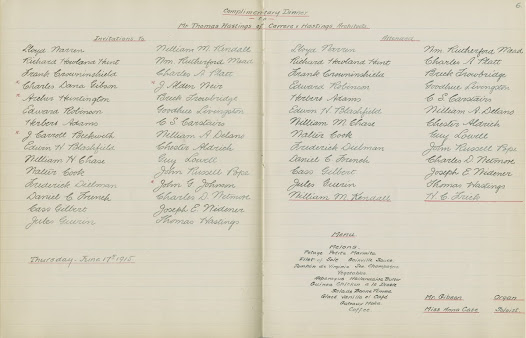 6.
Complimentary Dinner
to
Mr Thomas Hastings of Carrere & Hastings Architects
Invitations to
Lloyd Warren
Richard Howland Hunt
Frank Crowninshield
" Charles Dana Gibson
" Archer Huntington
Edward Robinson
Herbert Adams
" J Carroll Beckwith
Edwin H Blashfield
William M Chase
Walter Cook
Frederick Dielman
Daniel C French
Cass Gilbert
Jules Guerin
William M. Kendall
Wm Rutherford Mead
Charles A Platt
" J Alden Weir
Breck Trowbridge
Goodhue Livingston
C S Carstairs
William A Delano
Chester Aldrich
Guy Lowell
John Russell Pope
" John G Johnson
Charles D Wetmore
Joseph E Widener
Thomas Hastings
Thursday. June 17th 1915.
Attended
Lloyd Warren
Richard Howland Hunt
Frank Crowninshield
Edward Robinson
Herbert Adams
Edwin H. Blashfield
William M Chase
Walter Cook
Frederick Dielman
Daniel C French
Cass Gilbert
Jules Guerin
William M. Kendall
Wm Rutherford Mead
Charles A Platt
Breck Trowbridge
Goodhue Livingston
C S Carstairs
William A Delano
Chester Aldrich
Guy Lowell
John Russell Pope
Charles D Wetmore
Joseph E Widener
Thomas Hastings
H. C Frick
Menu
Melons
Potage Petite Marmite
Filet of Sole Joinville Sauce
Jambon de Virginie Sce. Champagne
Vegetables
Asparagus Hollandaise Butter
Guinea Chicken a la
Salade
Glace Vanille et Café
Cake
Coffee
Mr. Gibson Organ
Miss Anna Case Soloist